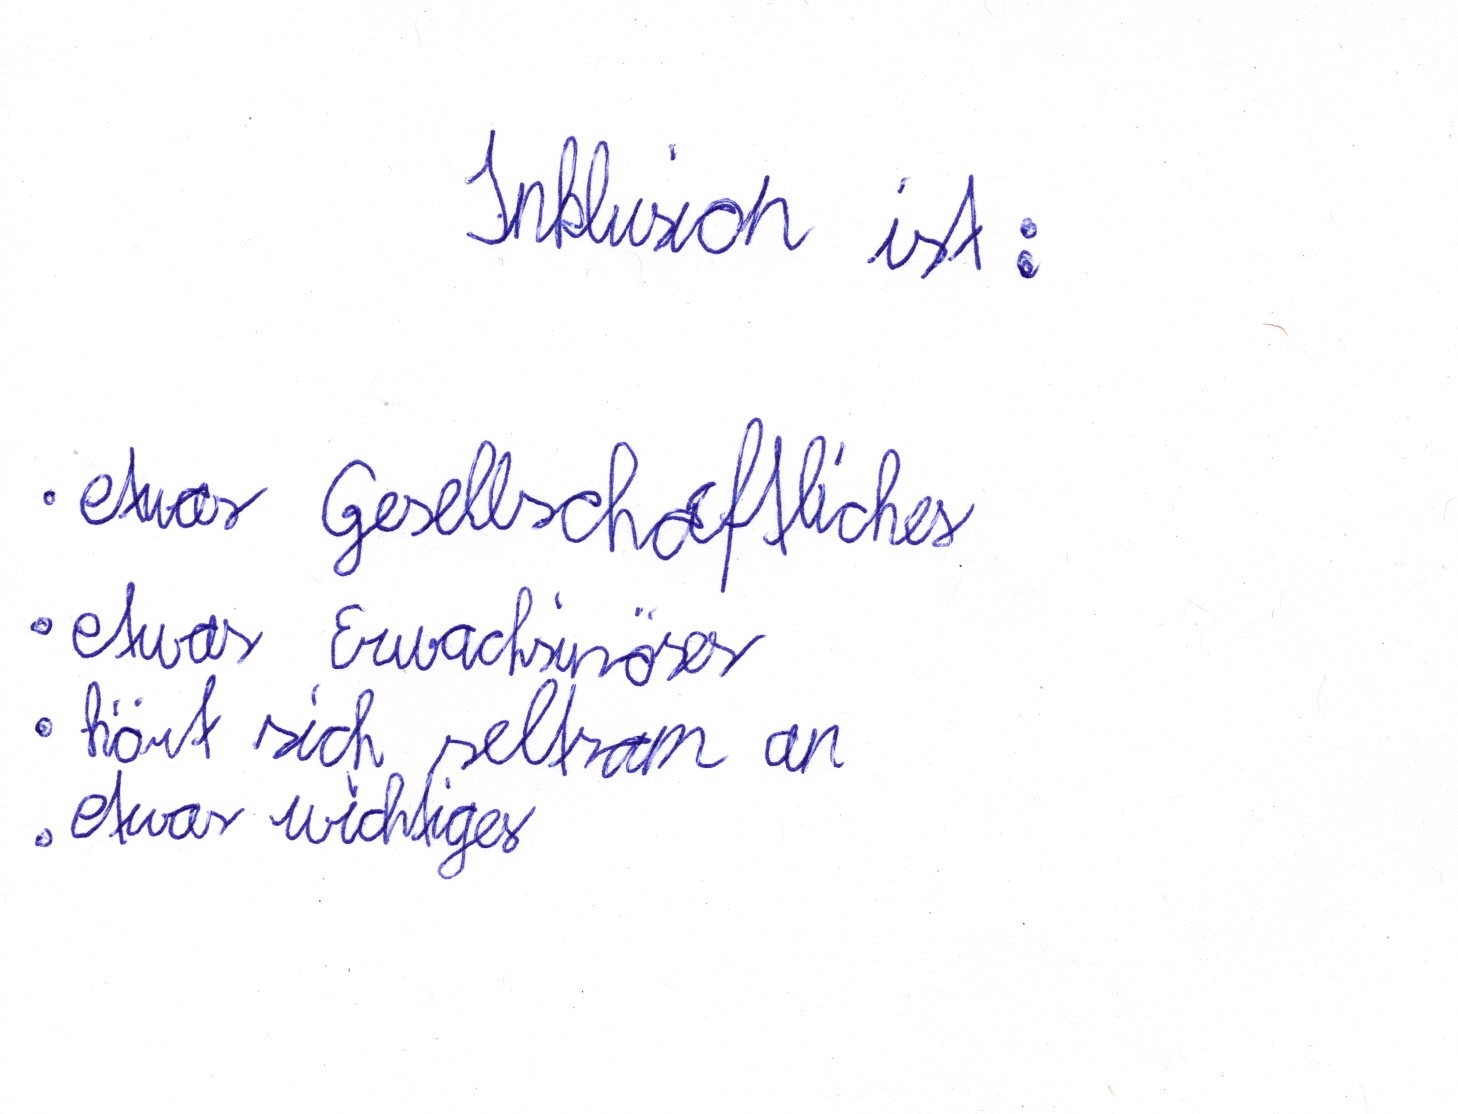 Inklusion ist:
• etwas Gesellschaftliches
• etwas Erwachsinöses
• hört sich seltsam an
• etwas wichtiges